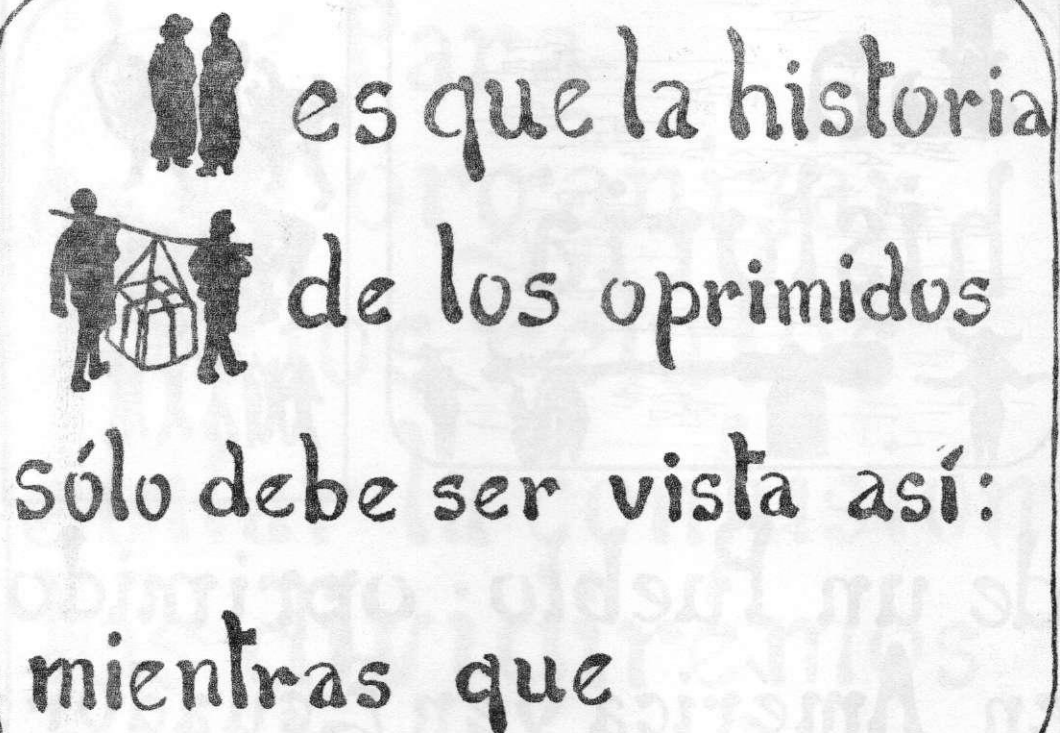 es que la historia
de los oprimidos
sólo debe ser vista así:
mientras que